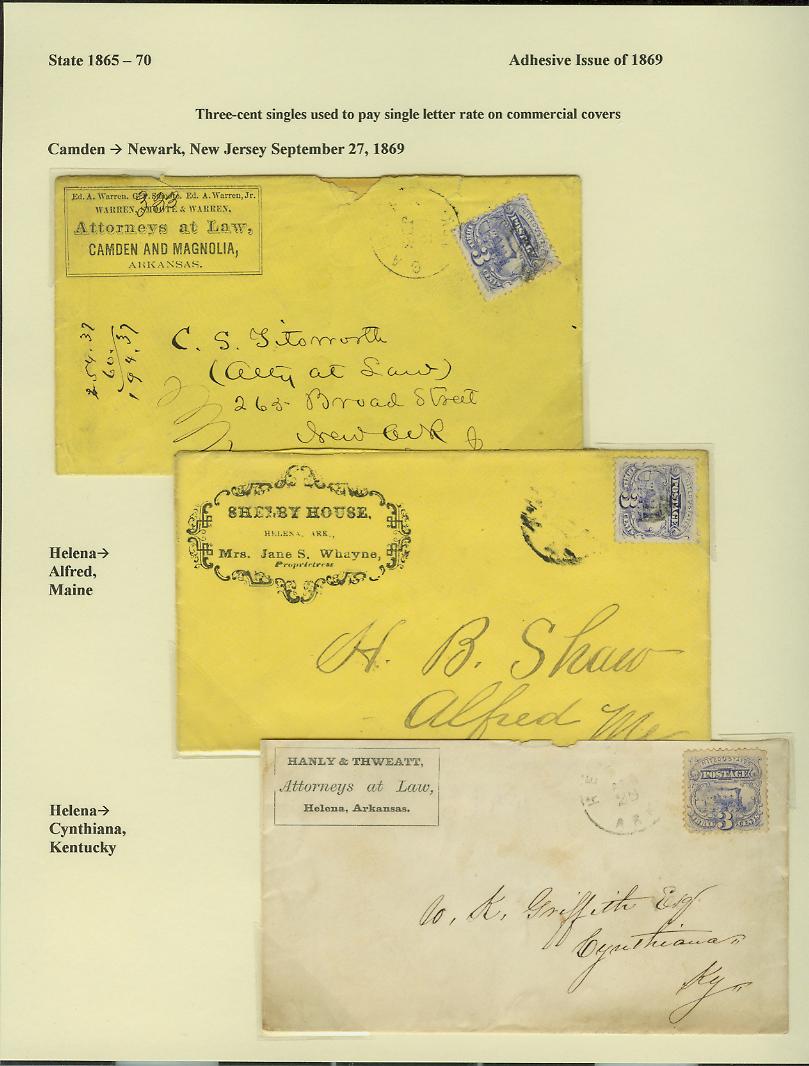 State 1865 – 70
Adhesive Issue of 1869
Three-cent singles used to pay single letter rate on commercial covers
Camden → Newark, New Jersey September 27, 1869
Ed. A. Warren. Ed. A. Warren, Jr.
383
WARREN, SMOOTE & WARREN,
Attorneys at Law,
CAMDEN AND MAGNOLIA,
ARKANSAS.
POSTAGE
3
254.37
60.
194.37
C. S. Titsworth
(Atty at Law)
265 Broad Street
Newark J
Helena→
Alfred,
Maine
SHELBY HOUSE,
HELENA, ARK.,
Mrs. Jane S. Whayne,
Proprietress
POSTAGE
3
H. B. Shaw
Alfred Me
Helena→
Cynthiana,
Kentucky
HANLY & THWEATT,
Attorneys at Law,
Helena, Arkansas.
20
ARK
UNITED STATES
POSTAGE
THREE 3 CENTS
W. K. Griffith Esq
Cynthiana
Ky